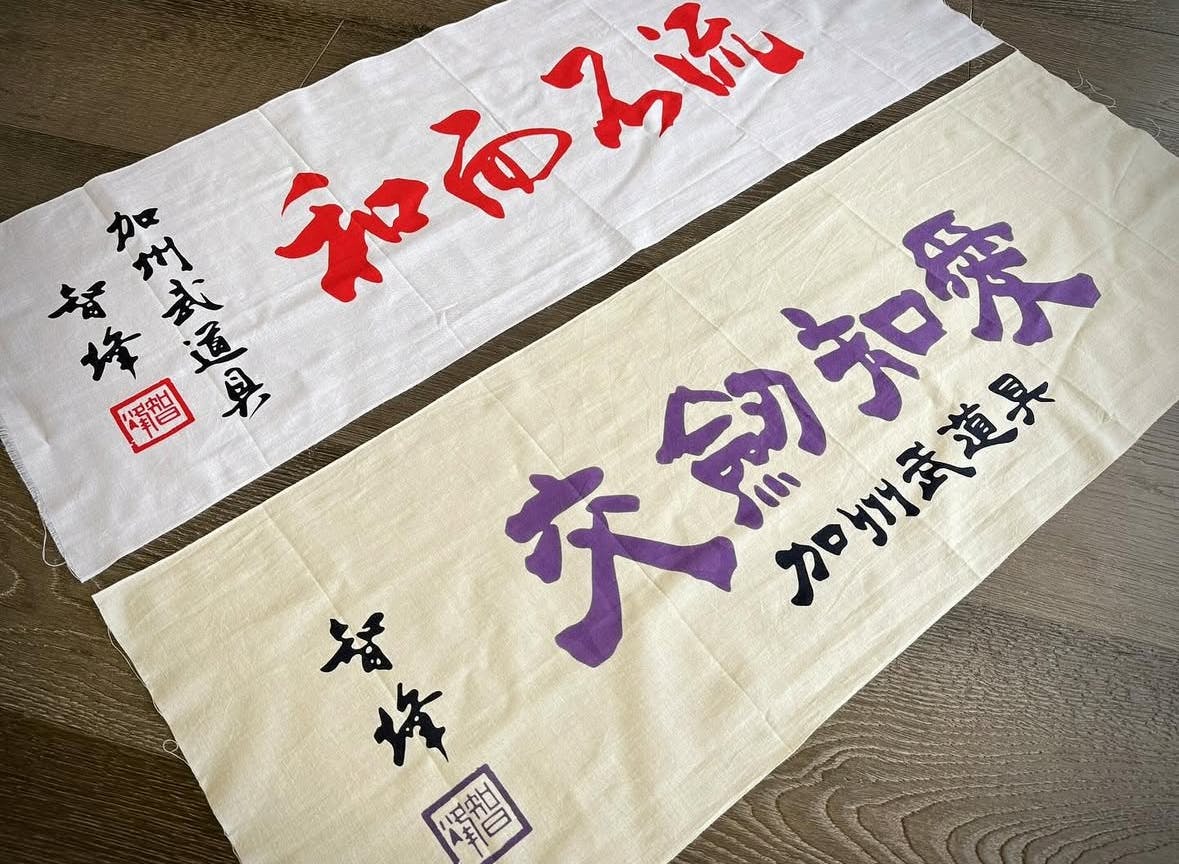 和而不流
加州武道具
智峰
智峰
交劔知愛
加州武道具
智峰
智峰